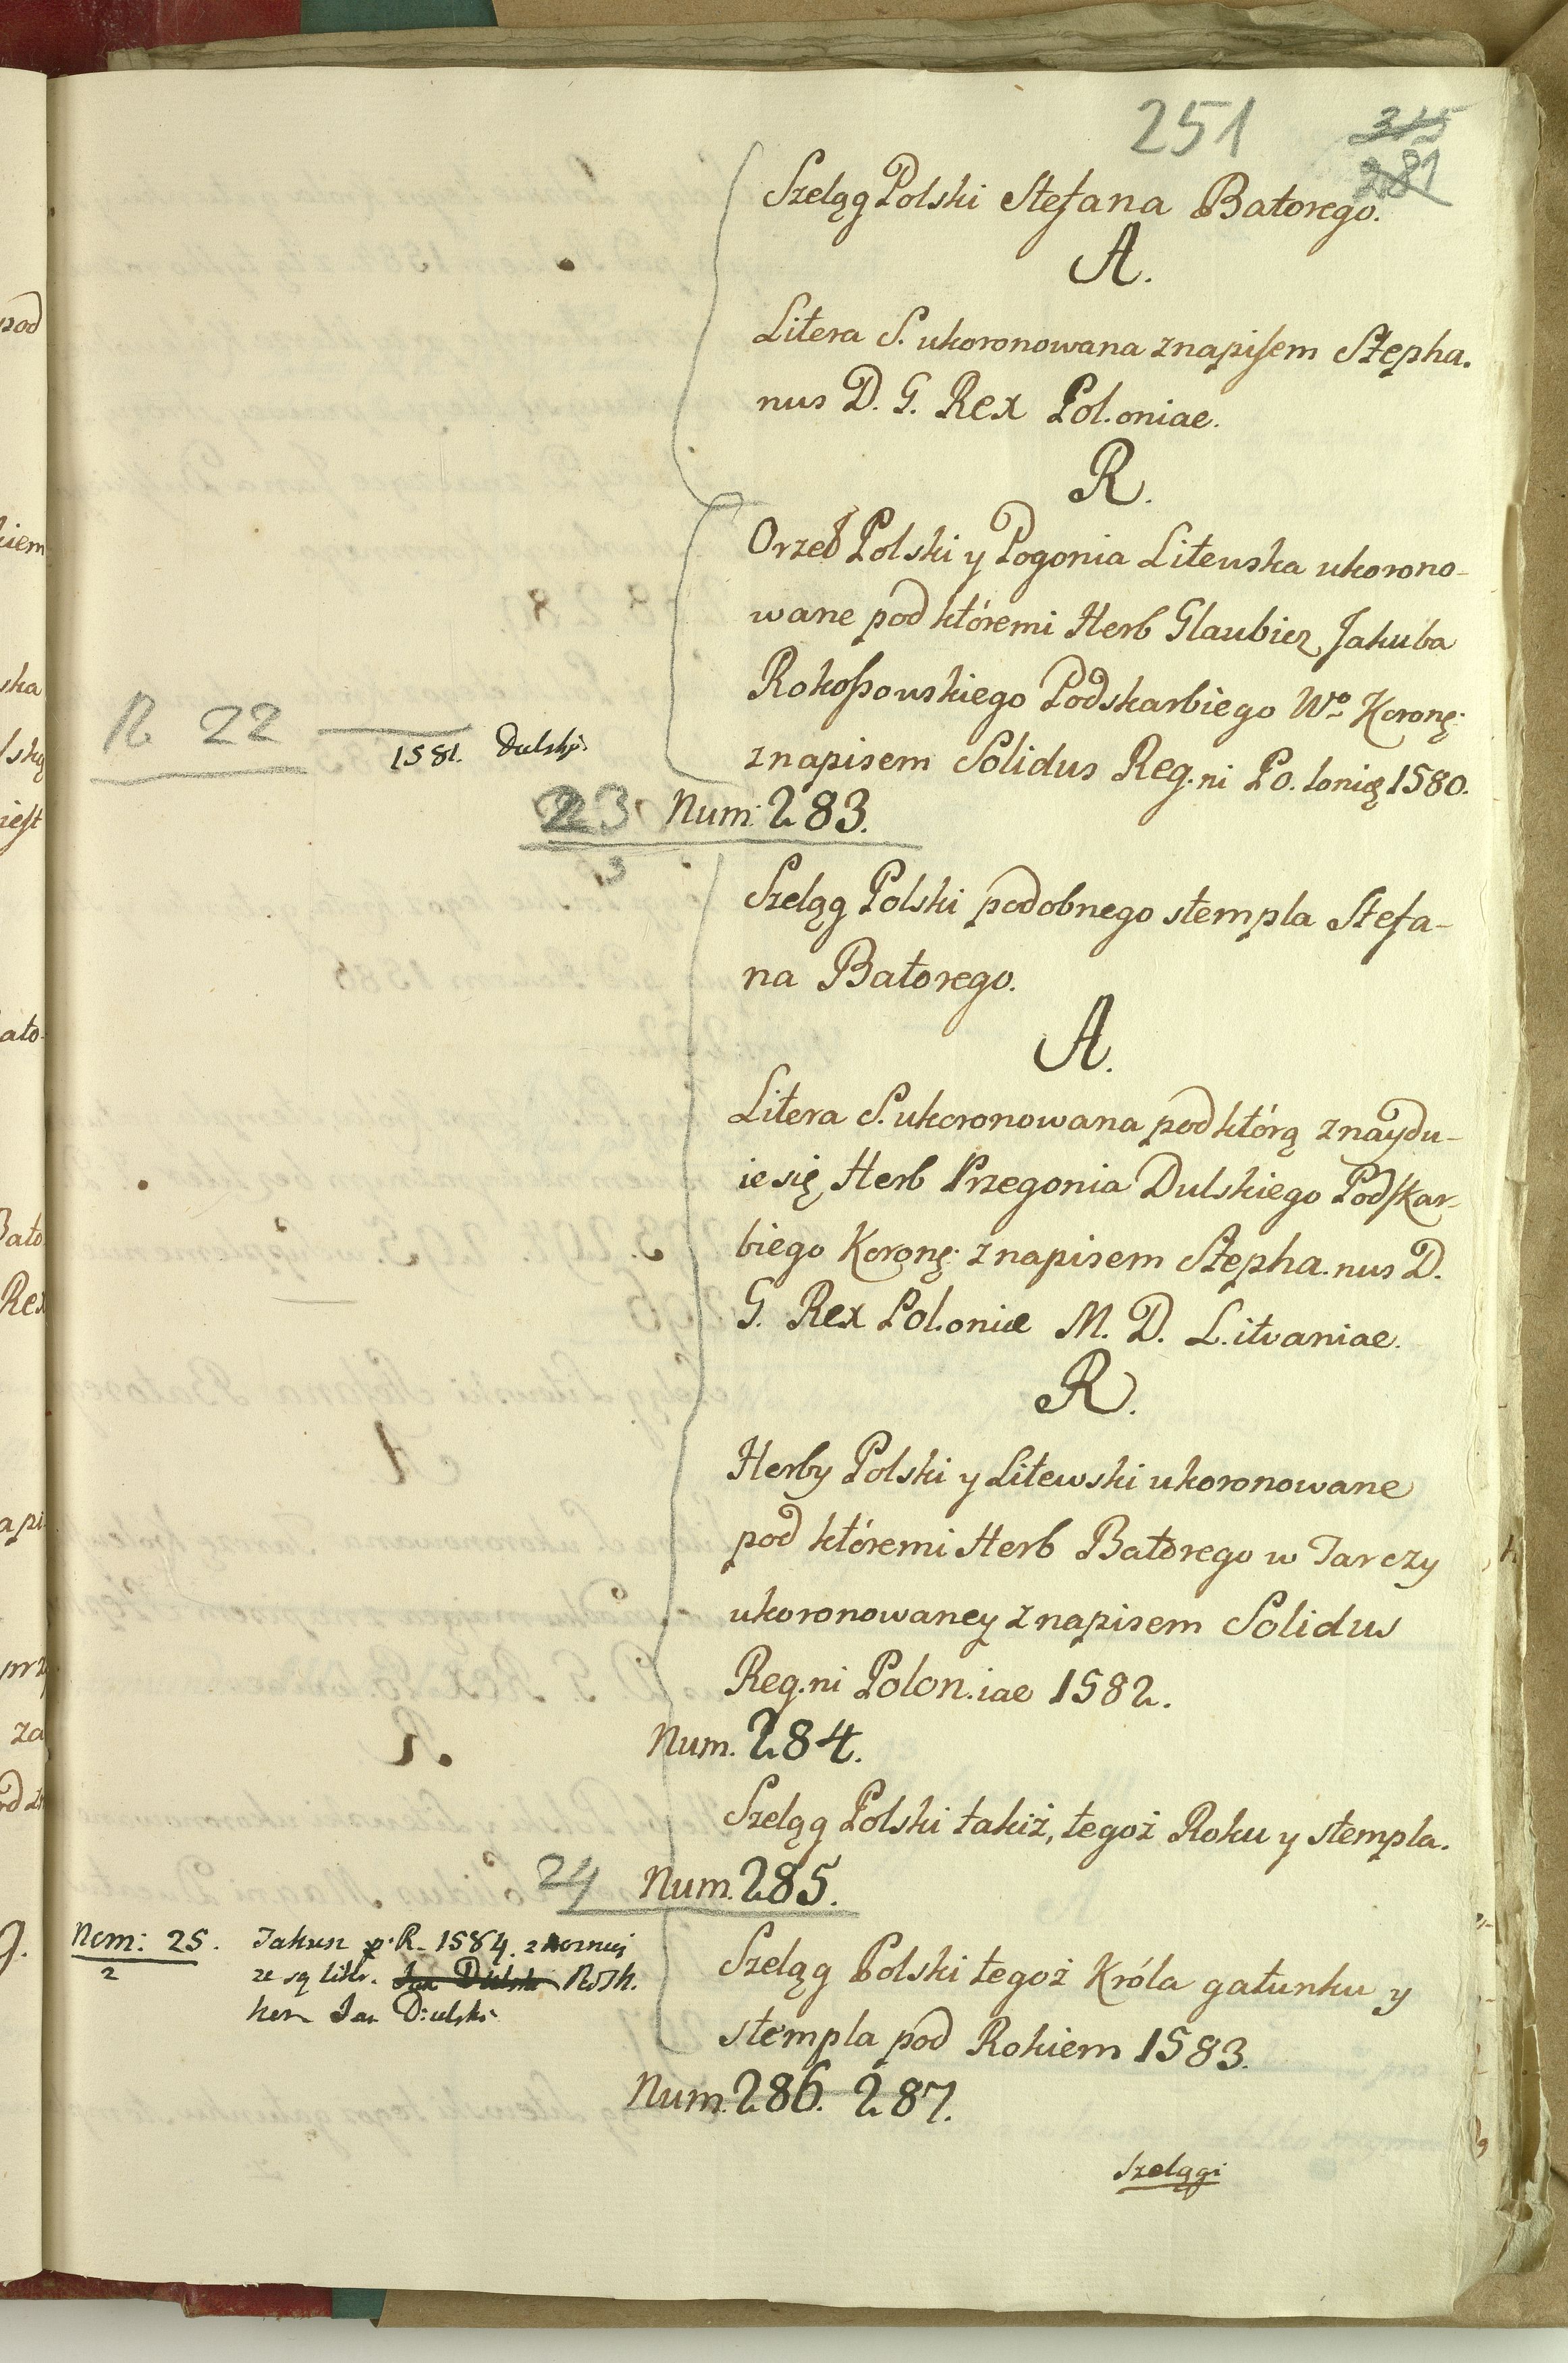 251
315
281
Szeląg Polski Stefana Batorego.
A.
Litera S. ukoronowana z napisem Stepha.
nus D. G. Rex Pol.oniae.
R.
Orzeł Polski y Pogonia Litewska ukorono-
wane pod któremi Herb Glaubicz Jakuba
Rokossowskiego Podskarbiego Wo Koronę:
z napisem Solidus Reg.ni Po.lonię 1580.
22
1581. Dulski.
23 Num: 283.
3
Szeląg Polski podobnego stempla Stefa-
na Batorego.
A.
Litera S. ukoronowana pod którą znaydu-
ie się Herb Przegonia Dulskiego Podskar-
biego Koronę: z napisem Stepha.nus D.
G. Rex Pol.oniæ M. D. L.itvaniae.
R.
Herby Polski y Litewski ukoronowane
pod któremi Herb Batorego w Tarczy
ukoronowaney z napisem Solidus
Reg.ni Polon.iae 1582.
Num. 284.
Szeląg Polski takiż, tegoż Roku y stempla.
24 Num. 285.
Num: 25. R. 1584.
2 ze są liter.
Jan Dulski
Szeląg Polski tegoż Króla gatunku y
stempla pod Rokiem 1583.
Num. 286. 287.
Szelągi